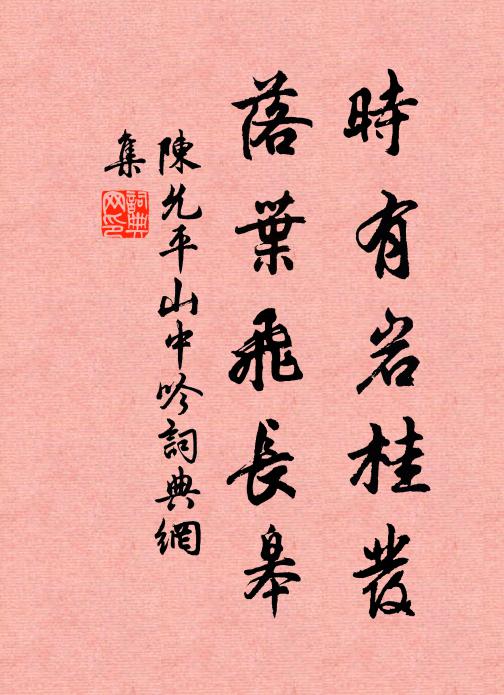 時有岩桂發
落葉飛長皋
陳允平山中吟詞典網
集
詞典
网印